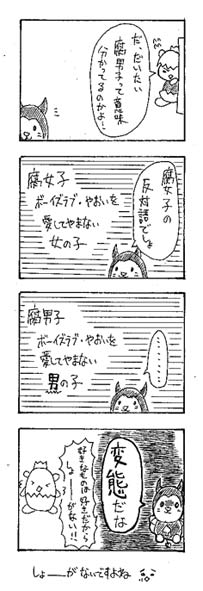 だ、だいたい
腐男子って意味
分かってるのかよー
腐女子の
反対語でしょ
腐女子
ボーイズラブ・やおいを
愛してやまない
女の子
………
腐男子
ボーイズラブ・やおいを
愛してやまない
男の子
変態だな
好きなものは好きだから
しょーーがない!!
しょーーがないですよね